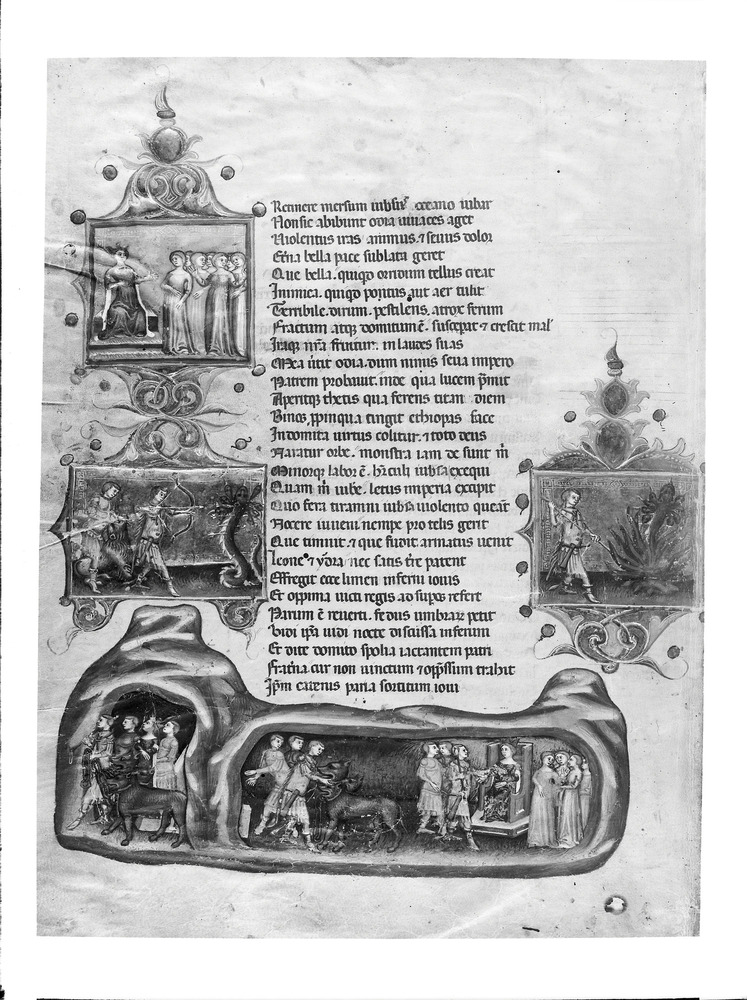 mersum oceano iubar
Non sic abibunt odia uiuaces aget
Violentus iras animus ⁊ seuus dolor
bella pace sublata geret
Que bella. quiqd tellus creat
Inimica. quiqd pontus aut aer tulit
Terribile. dirum. pestilens. atrox ferum
Fractum atq domitum ē. ⁊ crescit mal'
Iraq nr̄a fruitur. in laudes suas
Mea odia. dum nimis seua impero
Patrem probauit. inde qua lucem p̄mit
Aperitq thetis qua ferens titan diem
Binos, ppinqua tingit ethiopas face
Indomita uirtus colitur. ⁊ toto deus
Naratur orbe. monstra iam de sunt m̄
Minorq labor ē. h'culi iubsa exequi
Quam m̄ iube. letus imperia excipit
Quo fera tiranni iubsa uiolento queat
Nocere iuueni nempe pro telis gerit
Que timuit ⁊ que fudit armatus uenit
Leone ⁊ ydra nec satis tr̄e patent
Effregit ecce limen inferni iouis
Et oppima uicti regis ad sup̄os refert
Parum ē reuerti. fedus umbraꝝ petit
Vidi ip̄a uidi nocte discissa inferum
Et dite domito spolia iactantem patri
Frat'na cur non uinctum ⁊ opp̄ssum trahit
Ip̄m catenis paria sortitum ioui